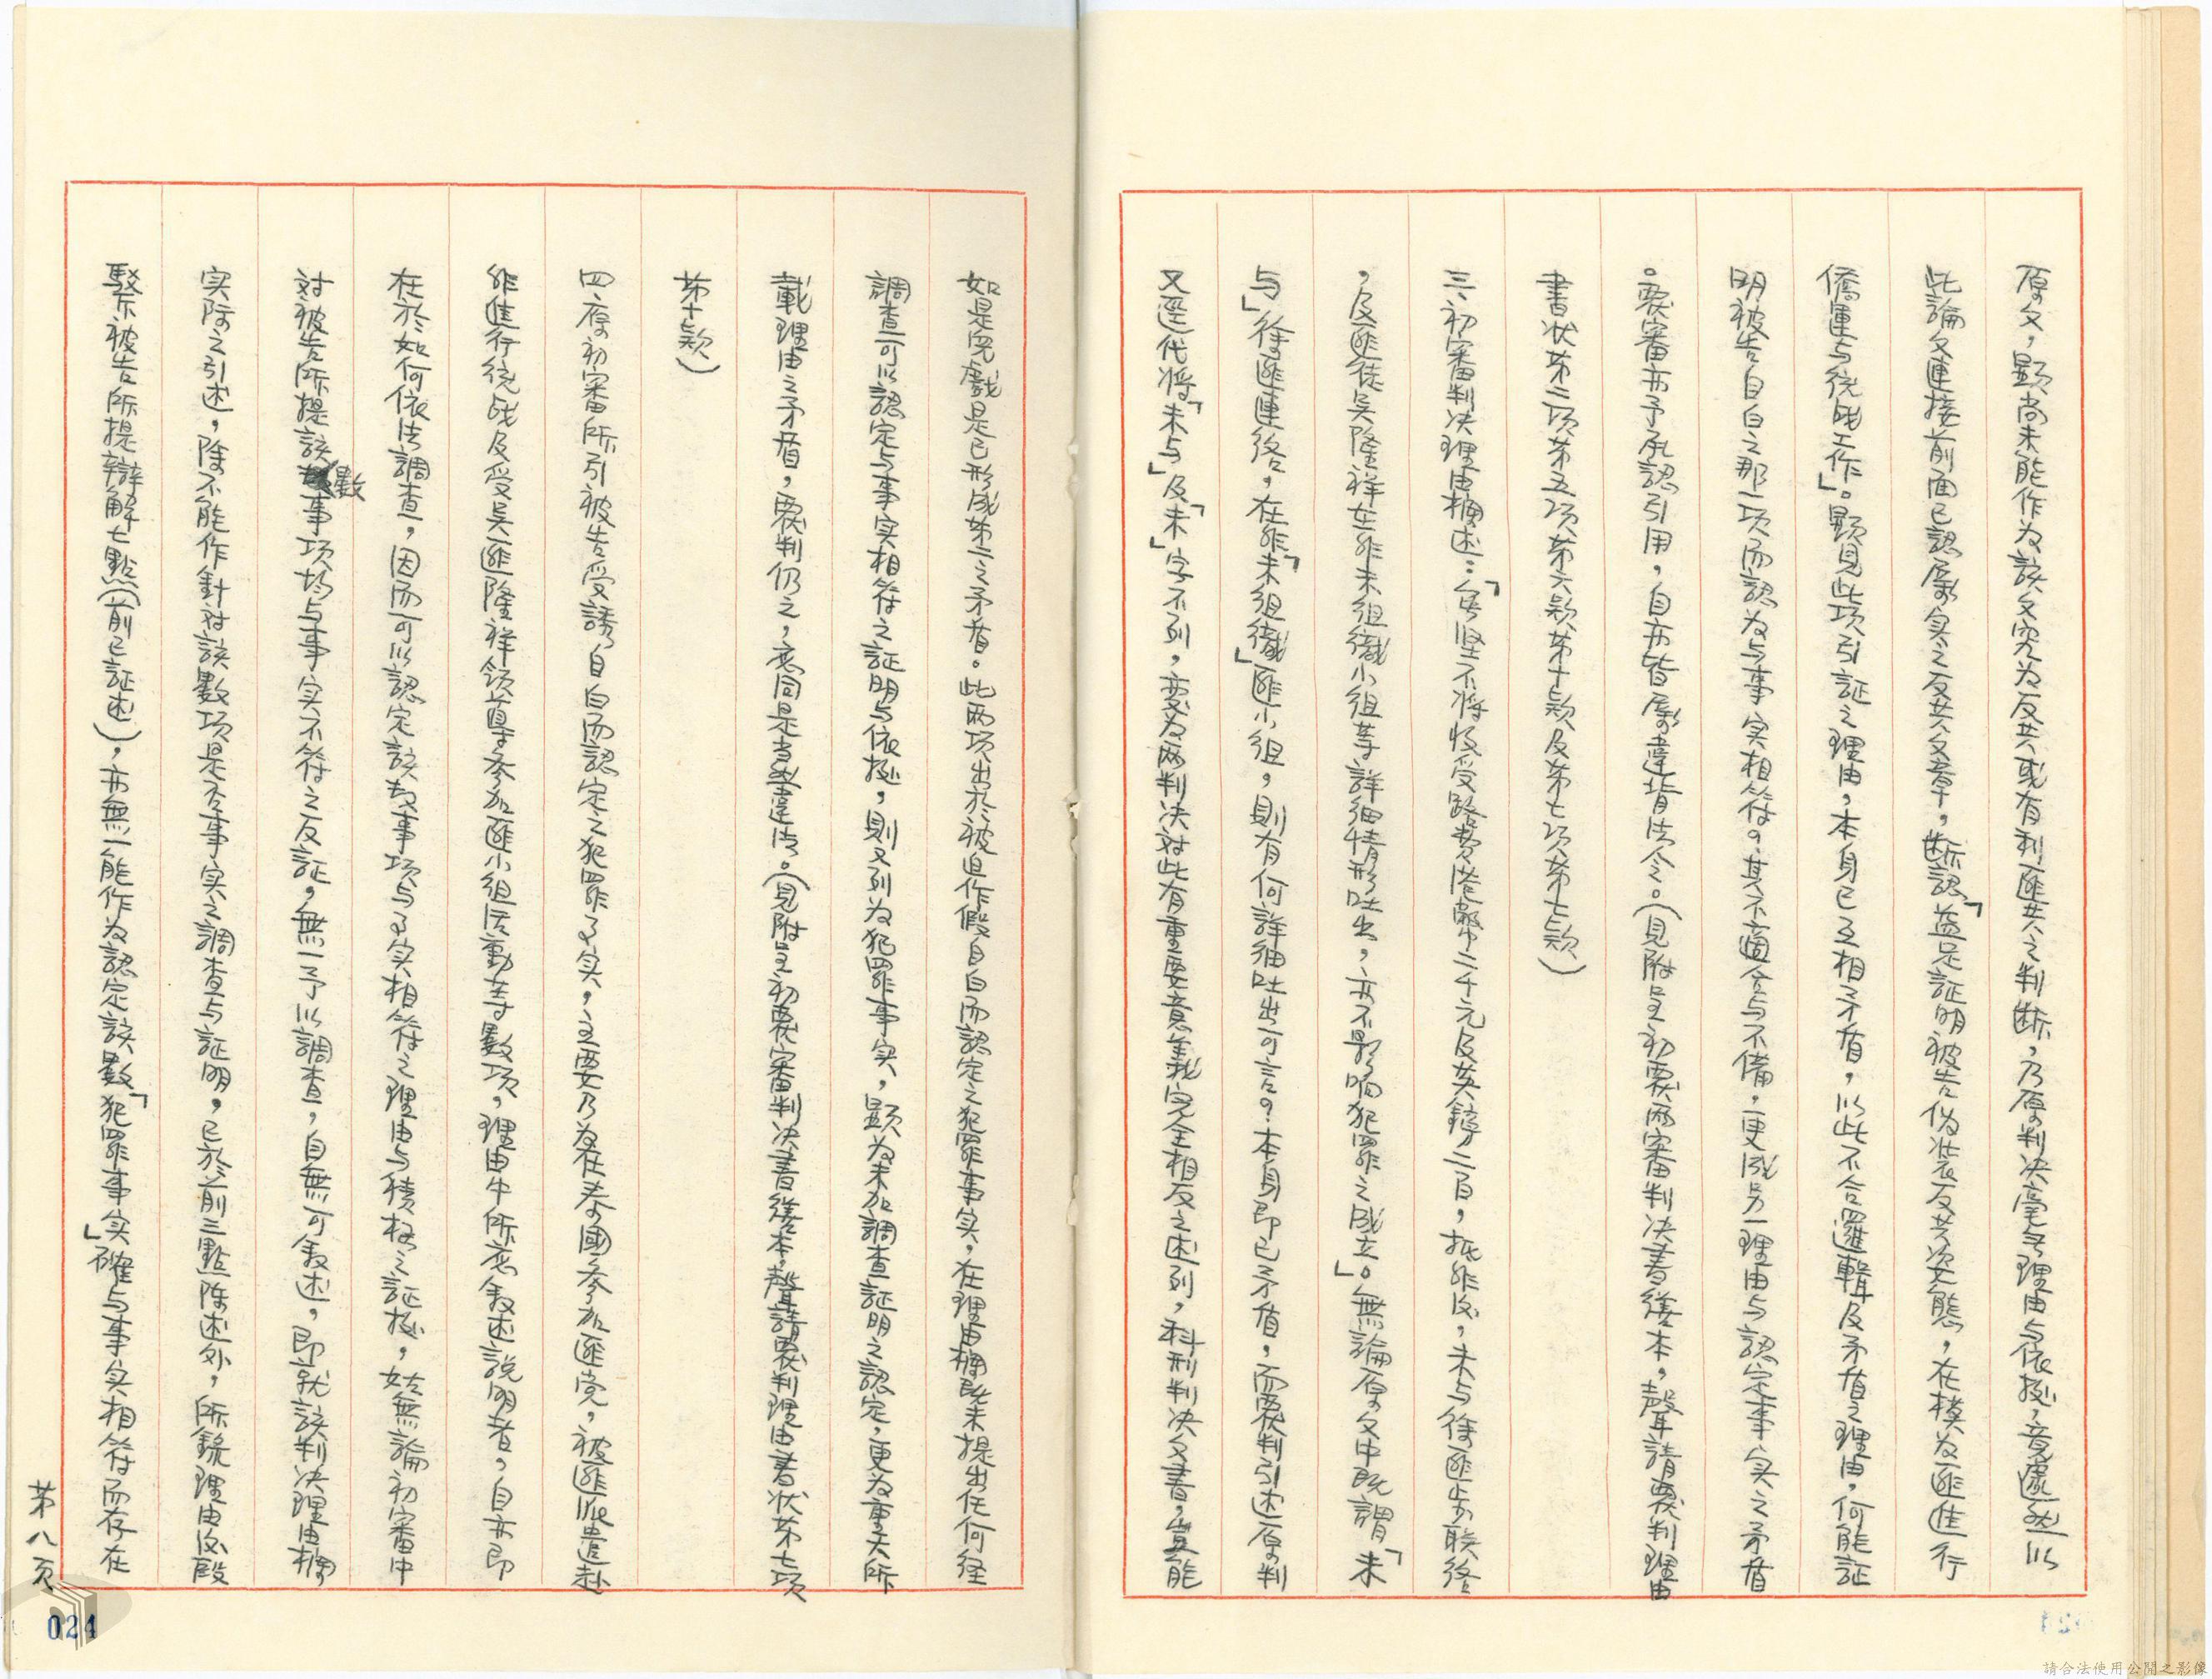 原文，顯尚未能作为該文究为反共或有利匪共之判断，乃原判決毫無理由与依据，竟遽然以
此論文連接前面已認屬实之反共文章，断認「益足証明被告偽裝反共姿態，在模为匪進行
僑運与統战工作」。顯見此項引証之理由，本身已互相矛盾，以此不合邏輯及矛盾之理由，何能証
明被告自白之那一項而認为与事实相符。其不適合与不備，更成另一理由与認定事实之矛盾
。覆審亦予承認引用，自亦皆屬違背法令。（見附呈初覆两審判決書繕本，聲請覆判理由
書状第二項第五項第六款第十款及第七項第七款）
三、初審判決理由欄述：「旋坚不將收受路費港幣二千元及英鎊二百，抵非後，未与徐匪步联络
，及匪徒吴隆祥在非未組織小組等詳细情形吐出，亦不影响犯罪之成立」。無論原文中既謂「未
与」徐匪連络，在非「未組織」匪小组，則有何詳细吐出可言？本身即已矛盾，而覆判引述原判
又逕代將「未与」及「未」字不列，变为两判決对此有重要意義完全相反之述列，科刑判決文書，豈能
如是兒戲是已形成第二之矛盾。此两項出於被迫作假自白而認定之犯罪事实，在理由欄既未提出任何经
調查可以認定与事实相符之証明与依据，則又列为犯罪事实，顯为未加調查証明之認定，更为重大所
載理由之矛盾，覆判仍之，應同是当然違法。（見附呈初覆審判決書繕本，聲請覆判理由書状第七項
第十款）
四、原初審所引被告受誘，自白而認定之犯罪事实，主要乃为在泰國參加匪党，被匪派遣赴
非進行統战及受吴匪隆祥領導參加匪小组活動等數項，理由中所應敘述説明者，自亦即
在於如何依法調查，因而可以認定該數事項与事实相符之理由与積极之証据，姑無論初審中
对被告所提該數事項均与事实不符之反証，無一予以調查，自無可敘述，即就該判決理由欄
实际之引述，除不能作針对該數項是否事实之調查与証明，已於前三點陳述外，所餘理由後段
駁斥被告所提辯解七點（前已証述），亦無一能作为認定該數「犯罪事实」確与事实相符而存在
第八頁
024
請合法使用公開之影像